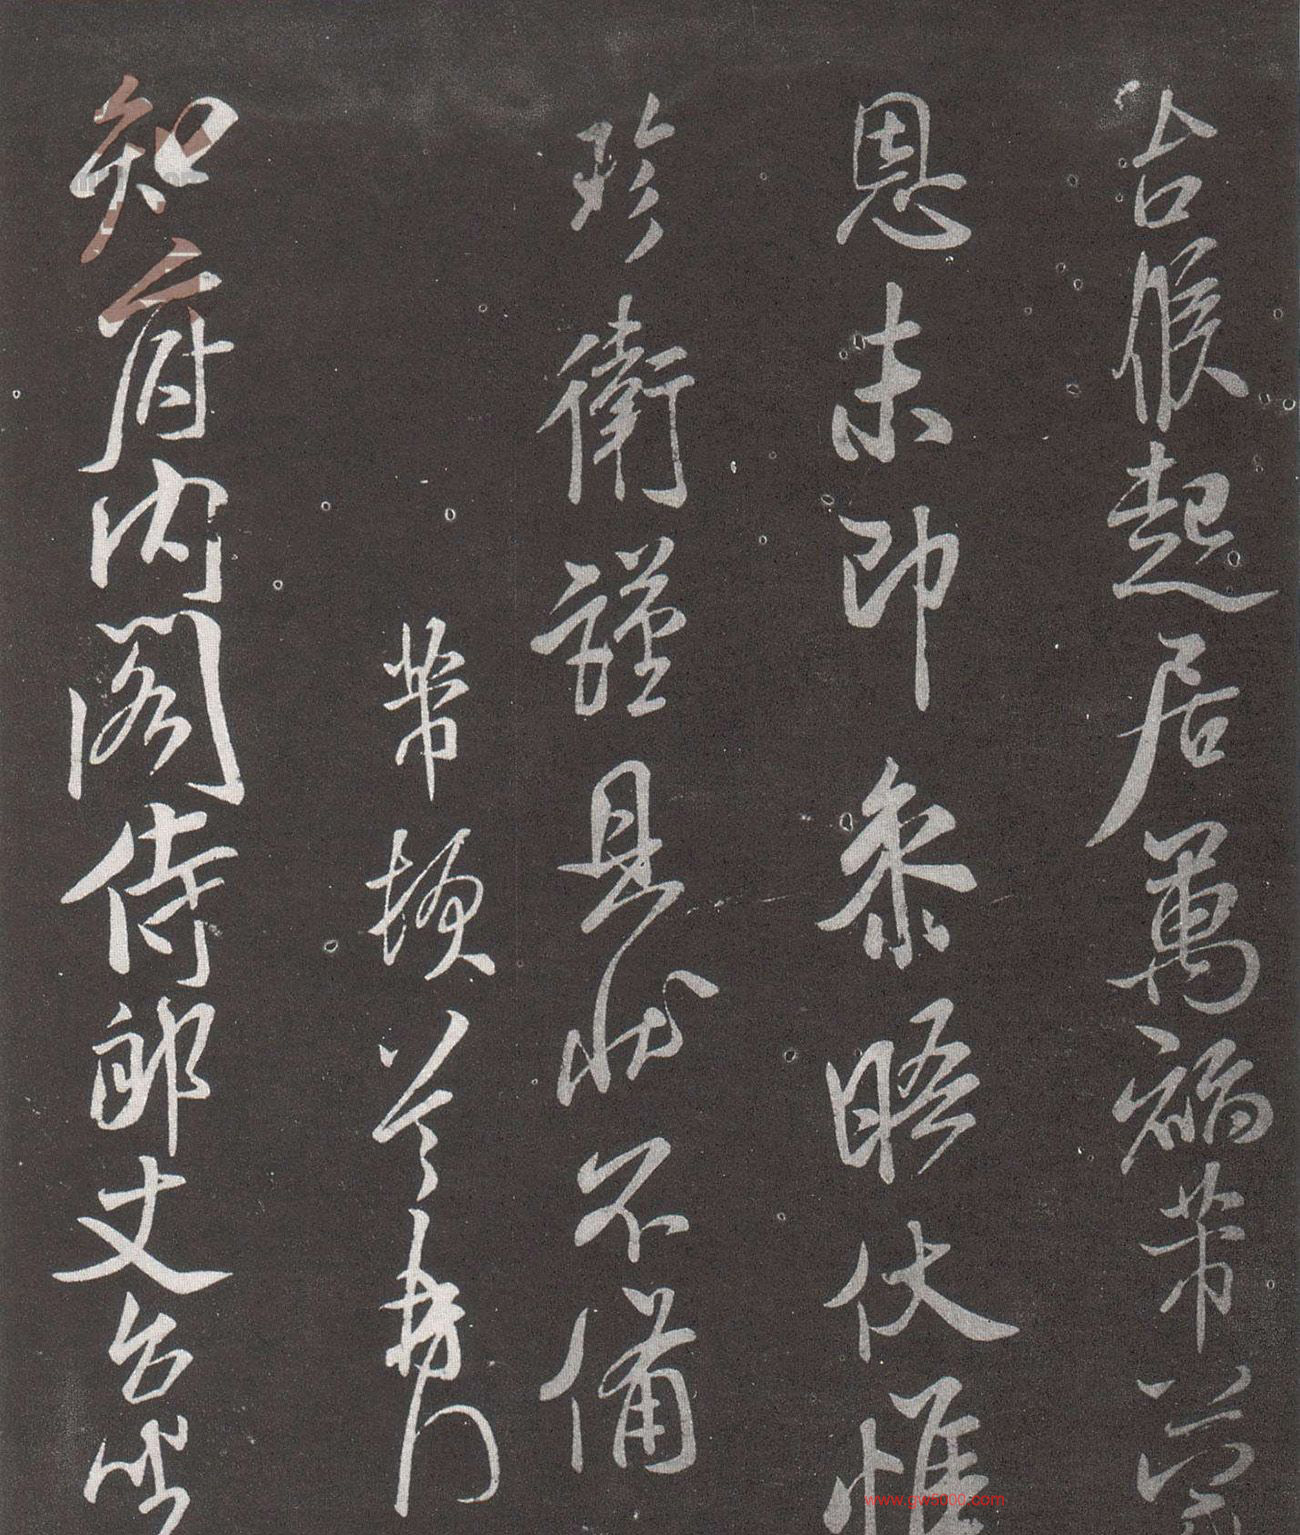 台候起居萬福芾蒙
恩未即參晤伏惟
珍衛謹具狀不備
芾頓首再拜
知府內閣侍郎丈台坐
www.gw5000.com